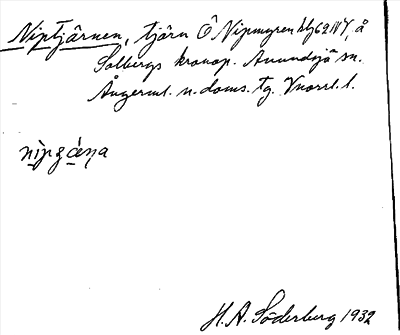 Niptjärnen, tjärn Ö Nipmyren blj 62 IV Y, å
Solbergs kronop. Anundsjö sn.
Ångerml. n. doms. tg. Vnorrl. l.
H. A. Söderberg 1932